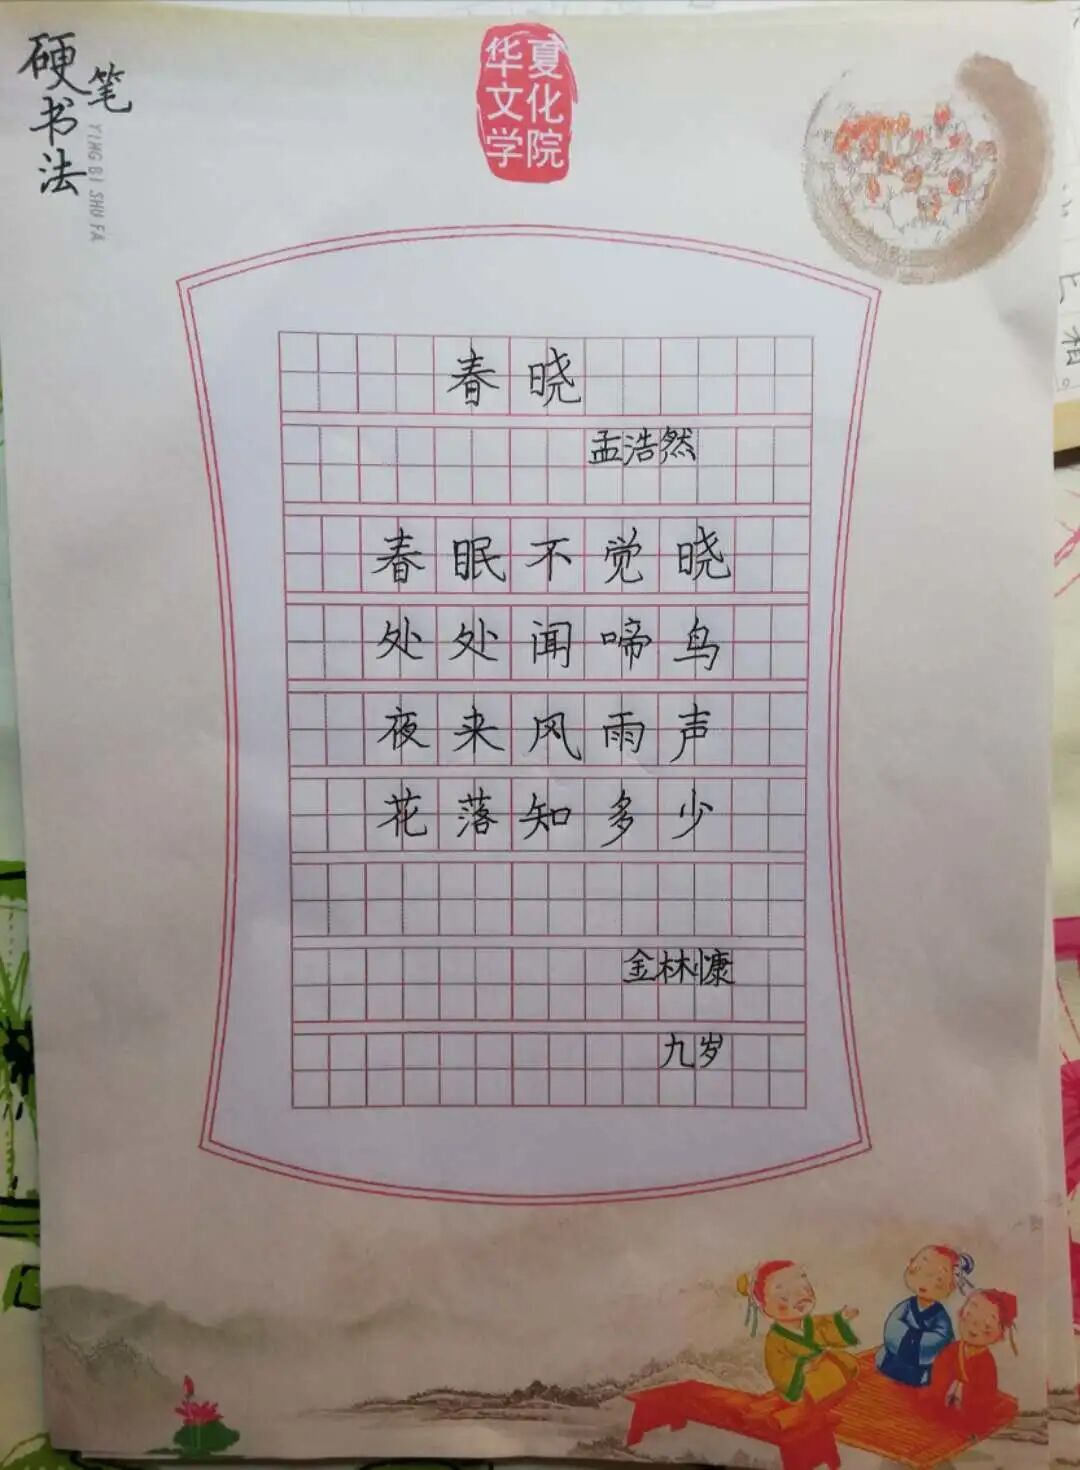 硬笔书法
YING BI SHU FA
华夏
文化
学院
春晓
孟浩然
春眠不觉晓
处处闻啼鸟
夜来风雨声
花落知多少
金林慷
九岁